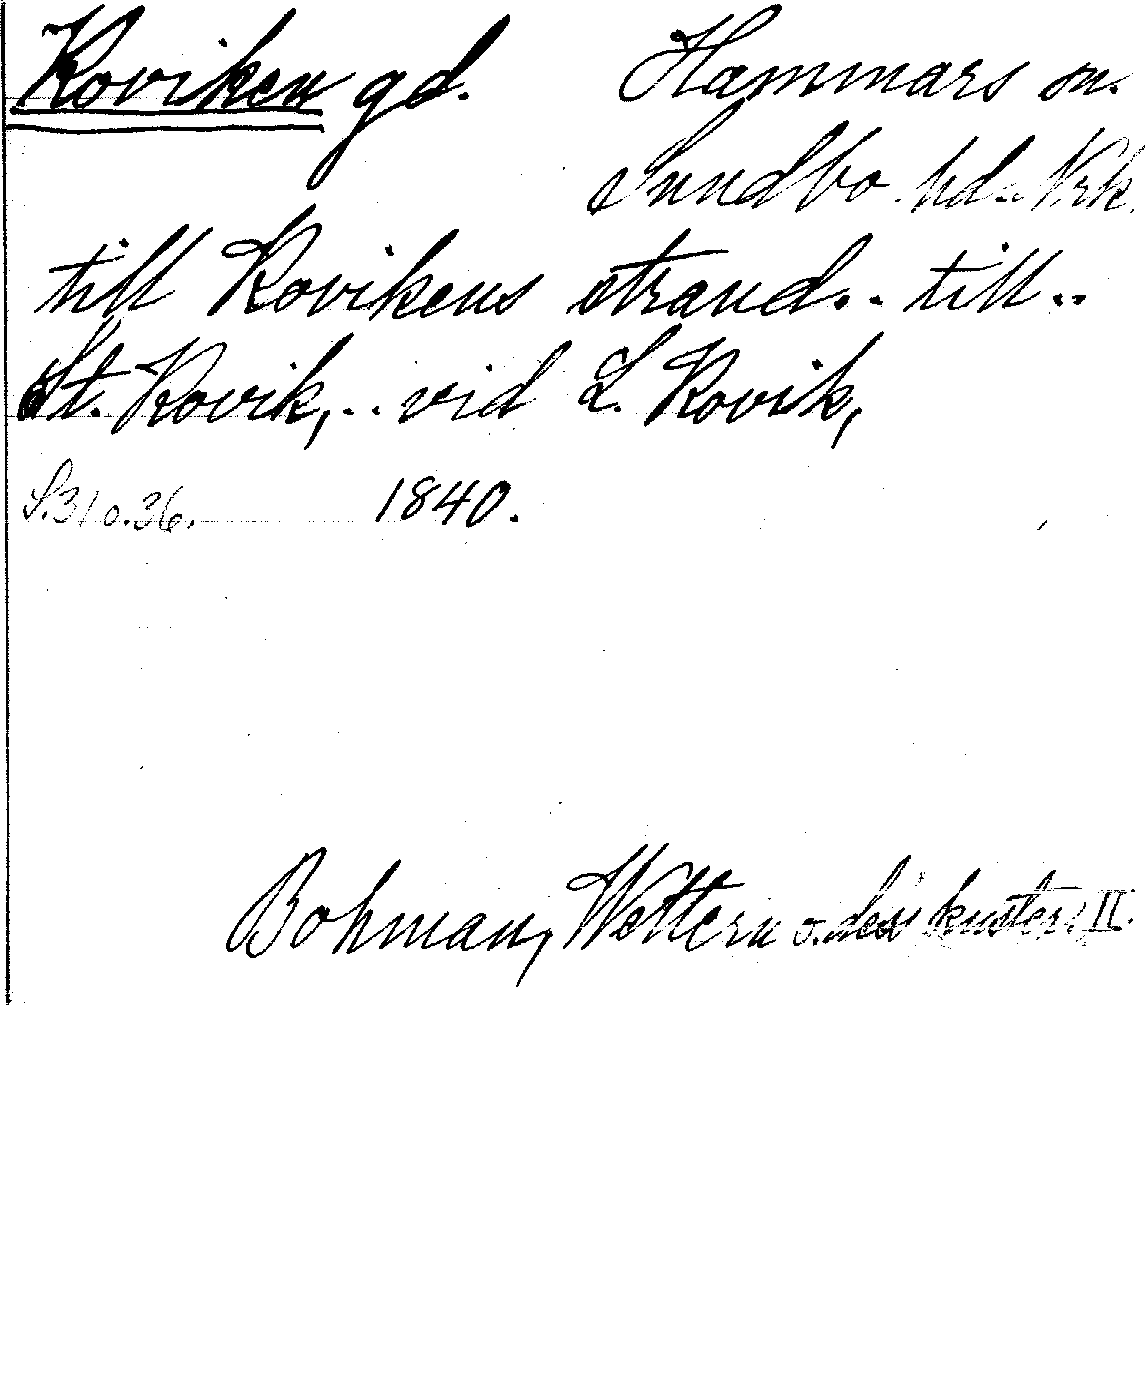 Roviken gd. Hammars sn.
Sundbo hd. Nrk.
till Rovikens strand.. till..
St. Rovik,.. vid L. Rovik,
S. 31 o. 36. 1840.
Bohman, Wettern o. dess kuster, II.